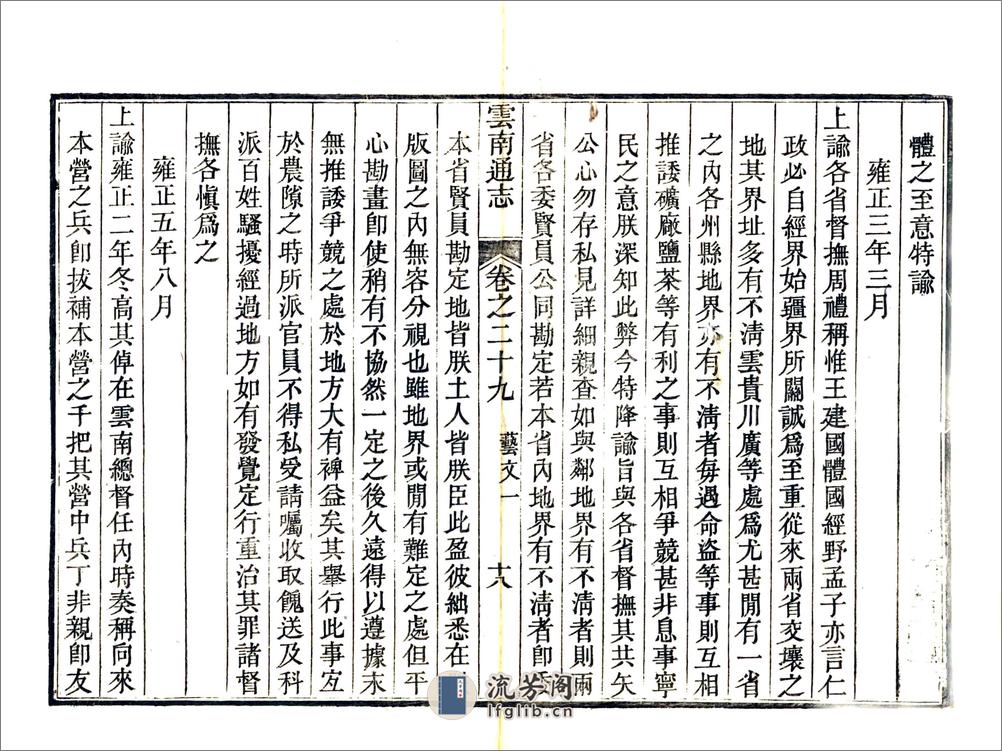 體之至意特諭
雍正三年三月
上諭各省督撫周禮稱惟王建國體國經野孟子亦言仁
政必自經界始疆界所關誠爲至重從來兩省交壤之
地其界址多有不淸雲貴川廣等處爲尤甚閒有一省
之內各州縣地界亦有不淸者每遇命盜等事則互相
推諉礦廠鹽茶等有利之事則互相爭競甚非息事寧
民之意朕深知此弊今特降諭旨與各省督撫其共矢
公心勿存私見詳細親查如與鄰地界有不淸者則兩
省各委賢員公同勘定若本省內地界有不淸者卽委
雲南通志 卷之二十九 藝文一 十八
本省賢員勘定地皆朕土人皆朕臣此盈彼絀悉在
版圖之內無容分視也雖地界或閒有難定之處但平
心勘畫卽使稍有不協然一定之後久遠得以遵據末
無推諉爭競之處於地方大有裨益矣其舉行此事宜
於農隙之時所派官員不得私受請囑收取餽送及科
派百姓騷擾經過地方如有發覺定行重治其罪諸督
撫各愼爲之
雍正五年八月
上諭雍正二年冬高其倬在雲南總督任內時奏稱向來
本營之兵卽拔補本營之千把其營中兵丁非親卽友
流芳阁
lfglib.cn